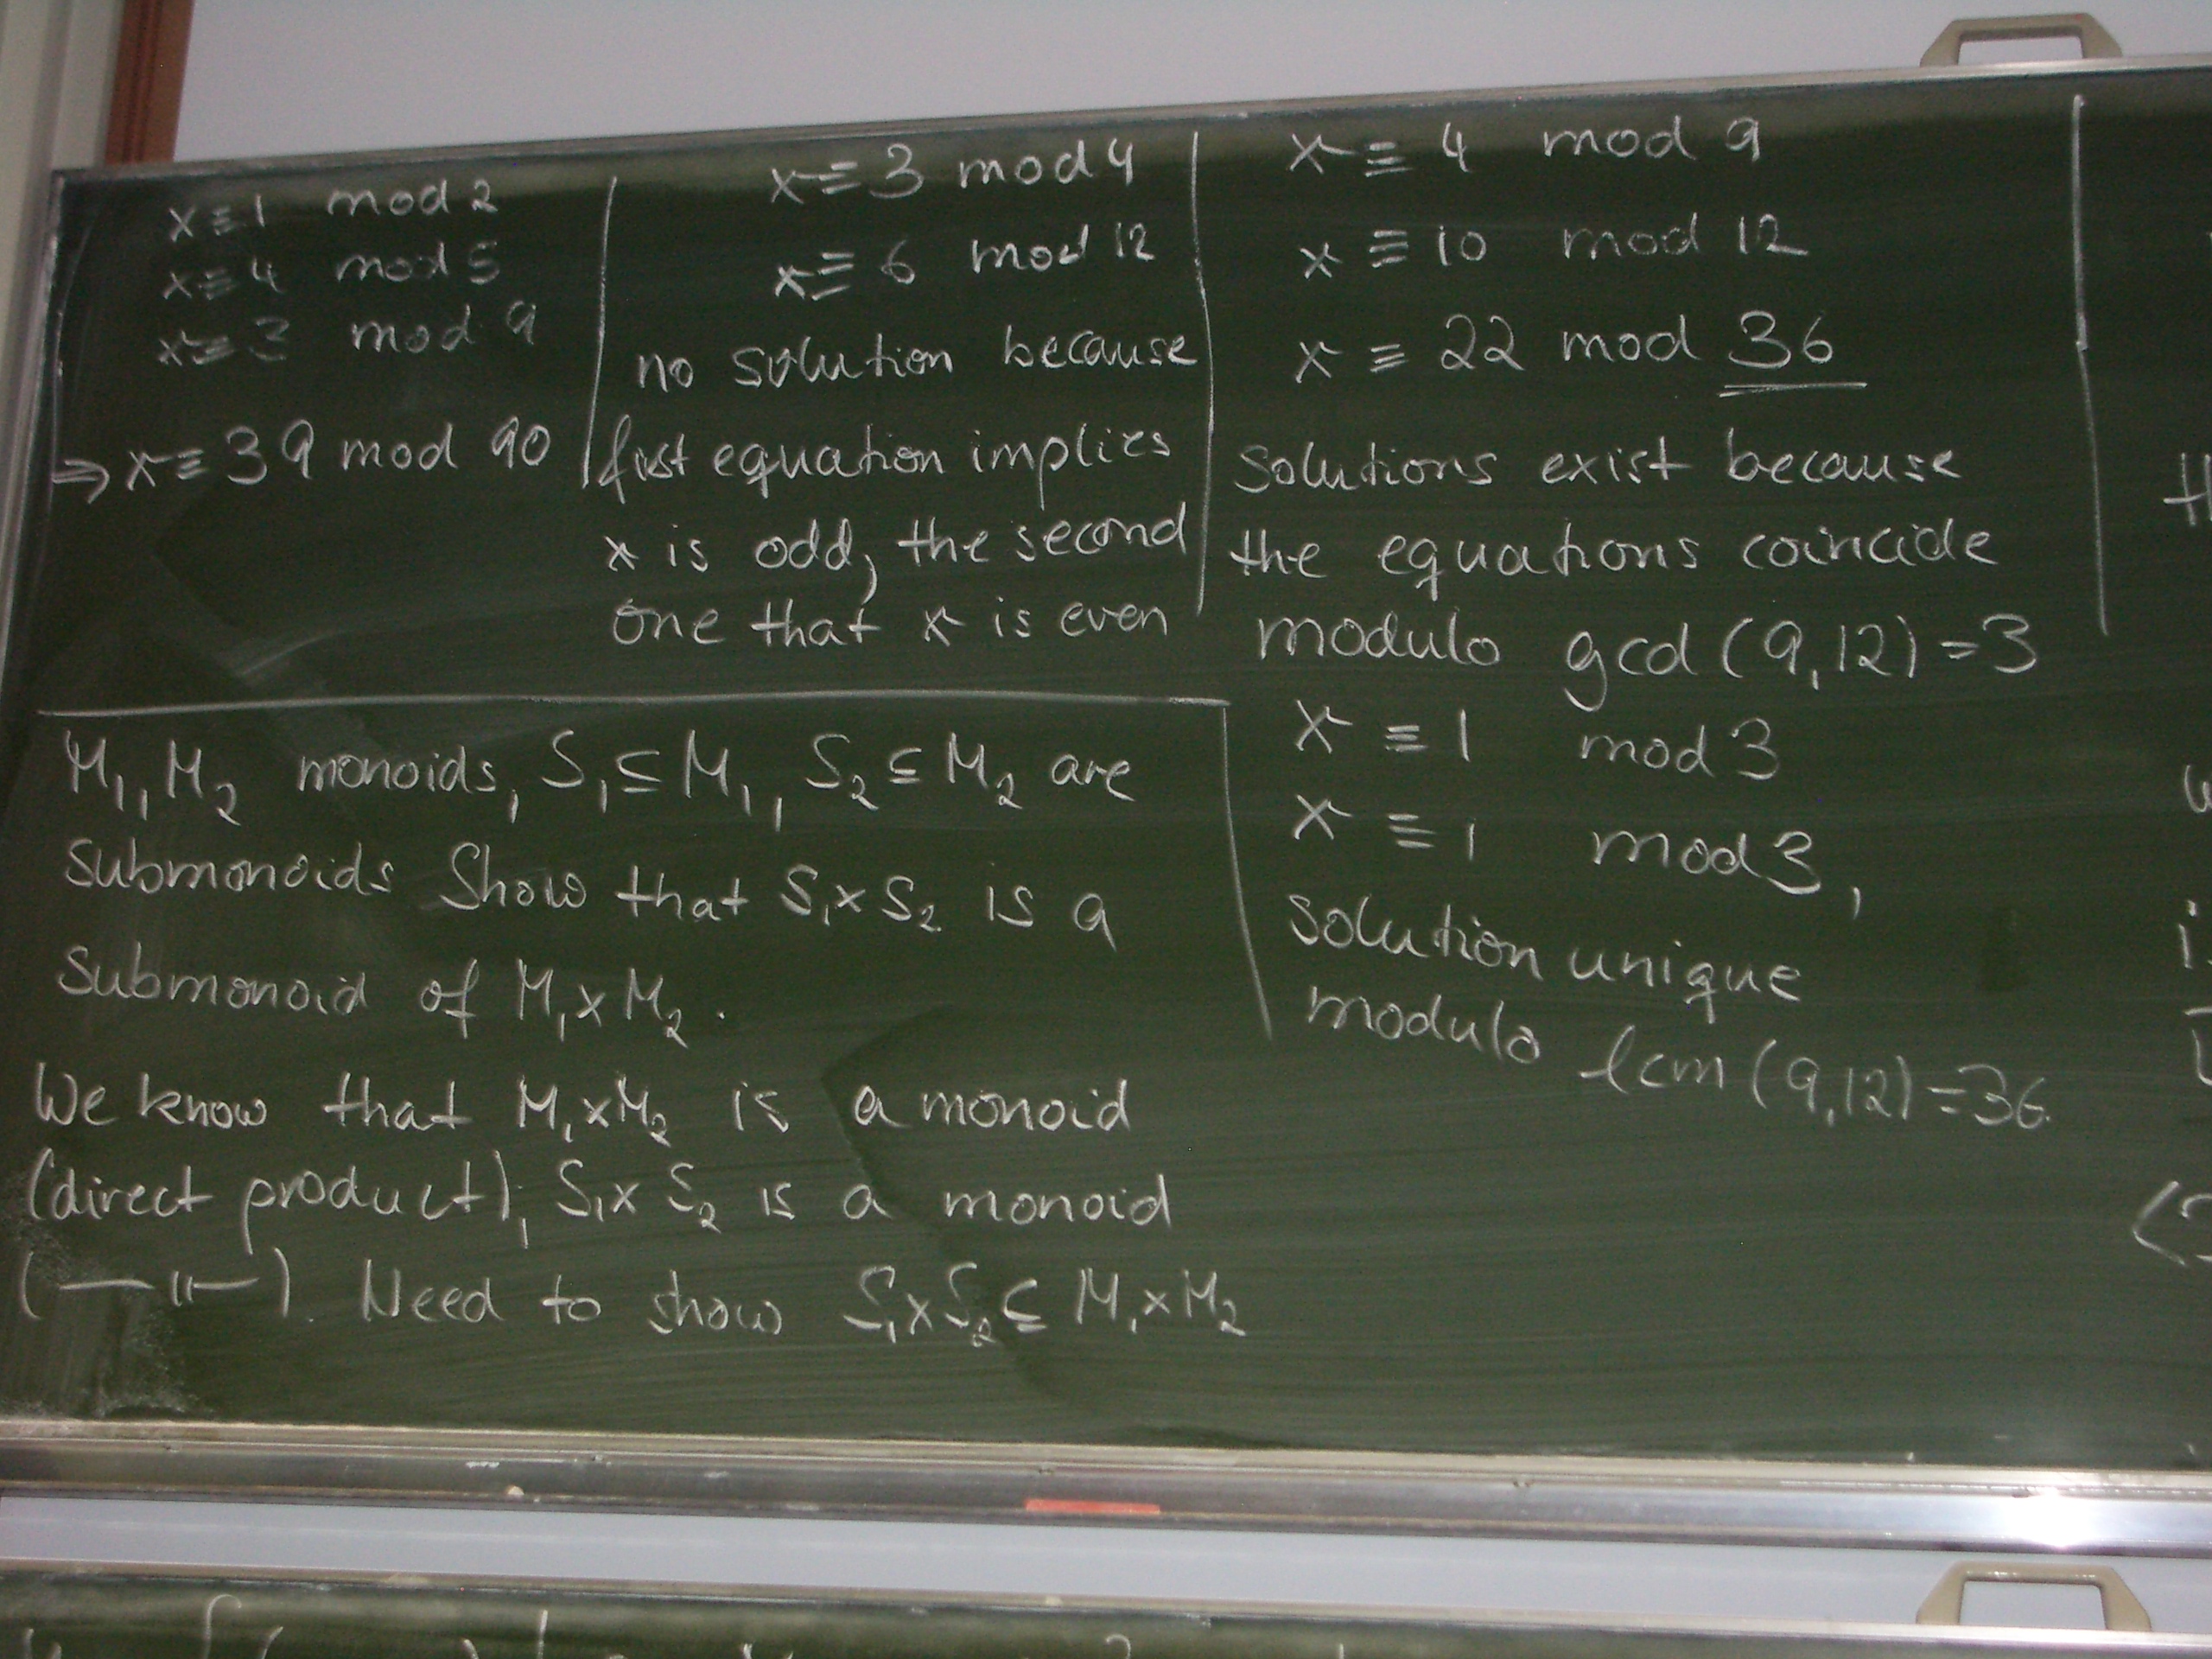 x ≡ 1 mod 2
x ≡ 4 mod 5
x ≡ 3 mod 9
⇒ x ≡ 39 mod 90
x ≡ 3 mod 4
x ≡ 6 mod 12
no solution because
first equation implies
x is odd, the second
one that x is even
x ≡ 4 mod 9
x ≡ 10 mod 12
x ≡ 22 mod 36
solutions exist because
the equations coincide
modulo gcd(9,12)=3
x ≡ 1 mod 3
x ≡ 1 mod 3,
solution unique
modulo lcm(9,12)=36.
M₁, M₂ monoids, S₁ ⊆ M₁, S₂ ⊆ M₂ are
submonoids Show that S₁×S₂ is a
submonoid of M₁×M₂.
We know that M₁×M₂ is a monoid
(direct product), S₁×S₂ is a monoid
(—"—). Need to show S₁×S₂ ⊆ M₁×M₂